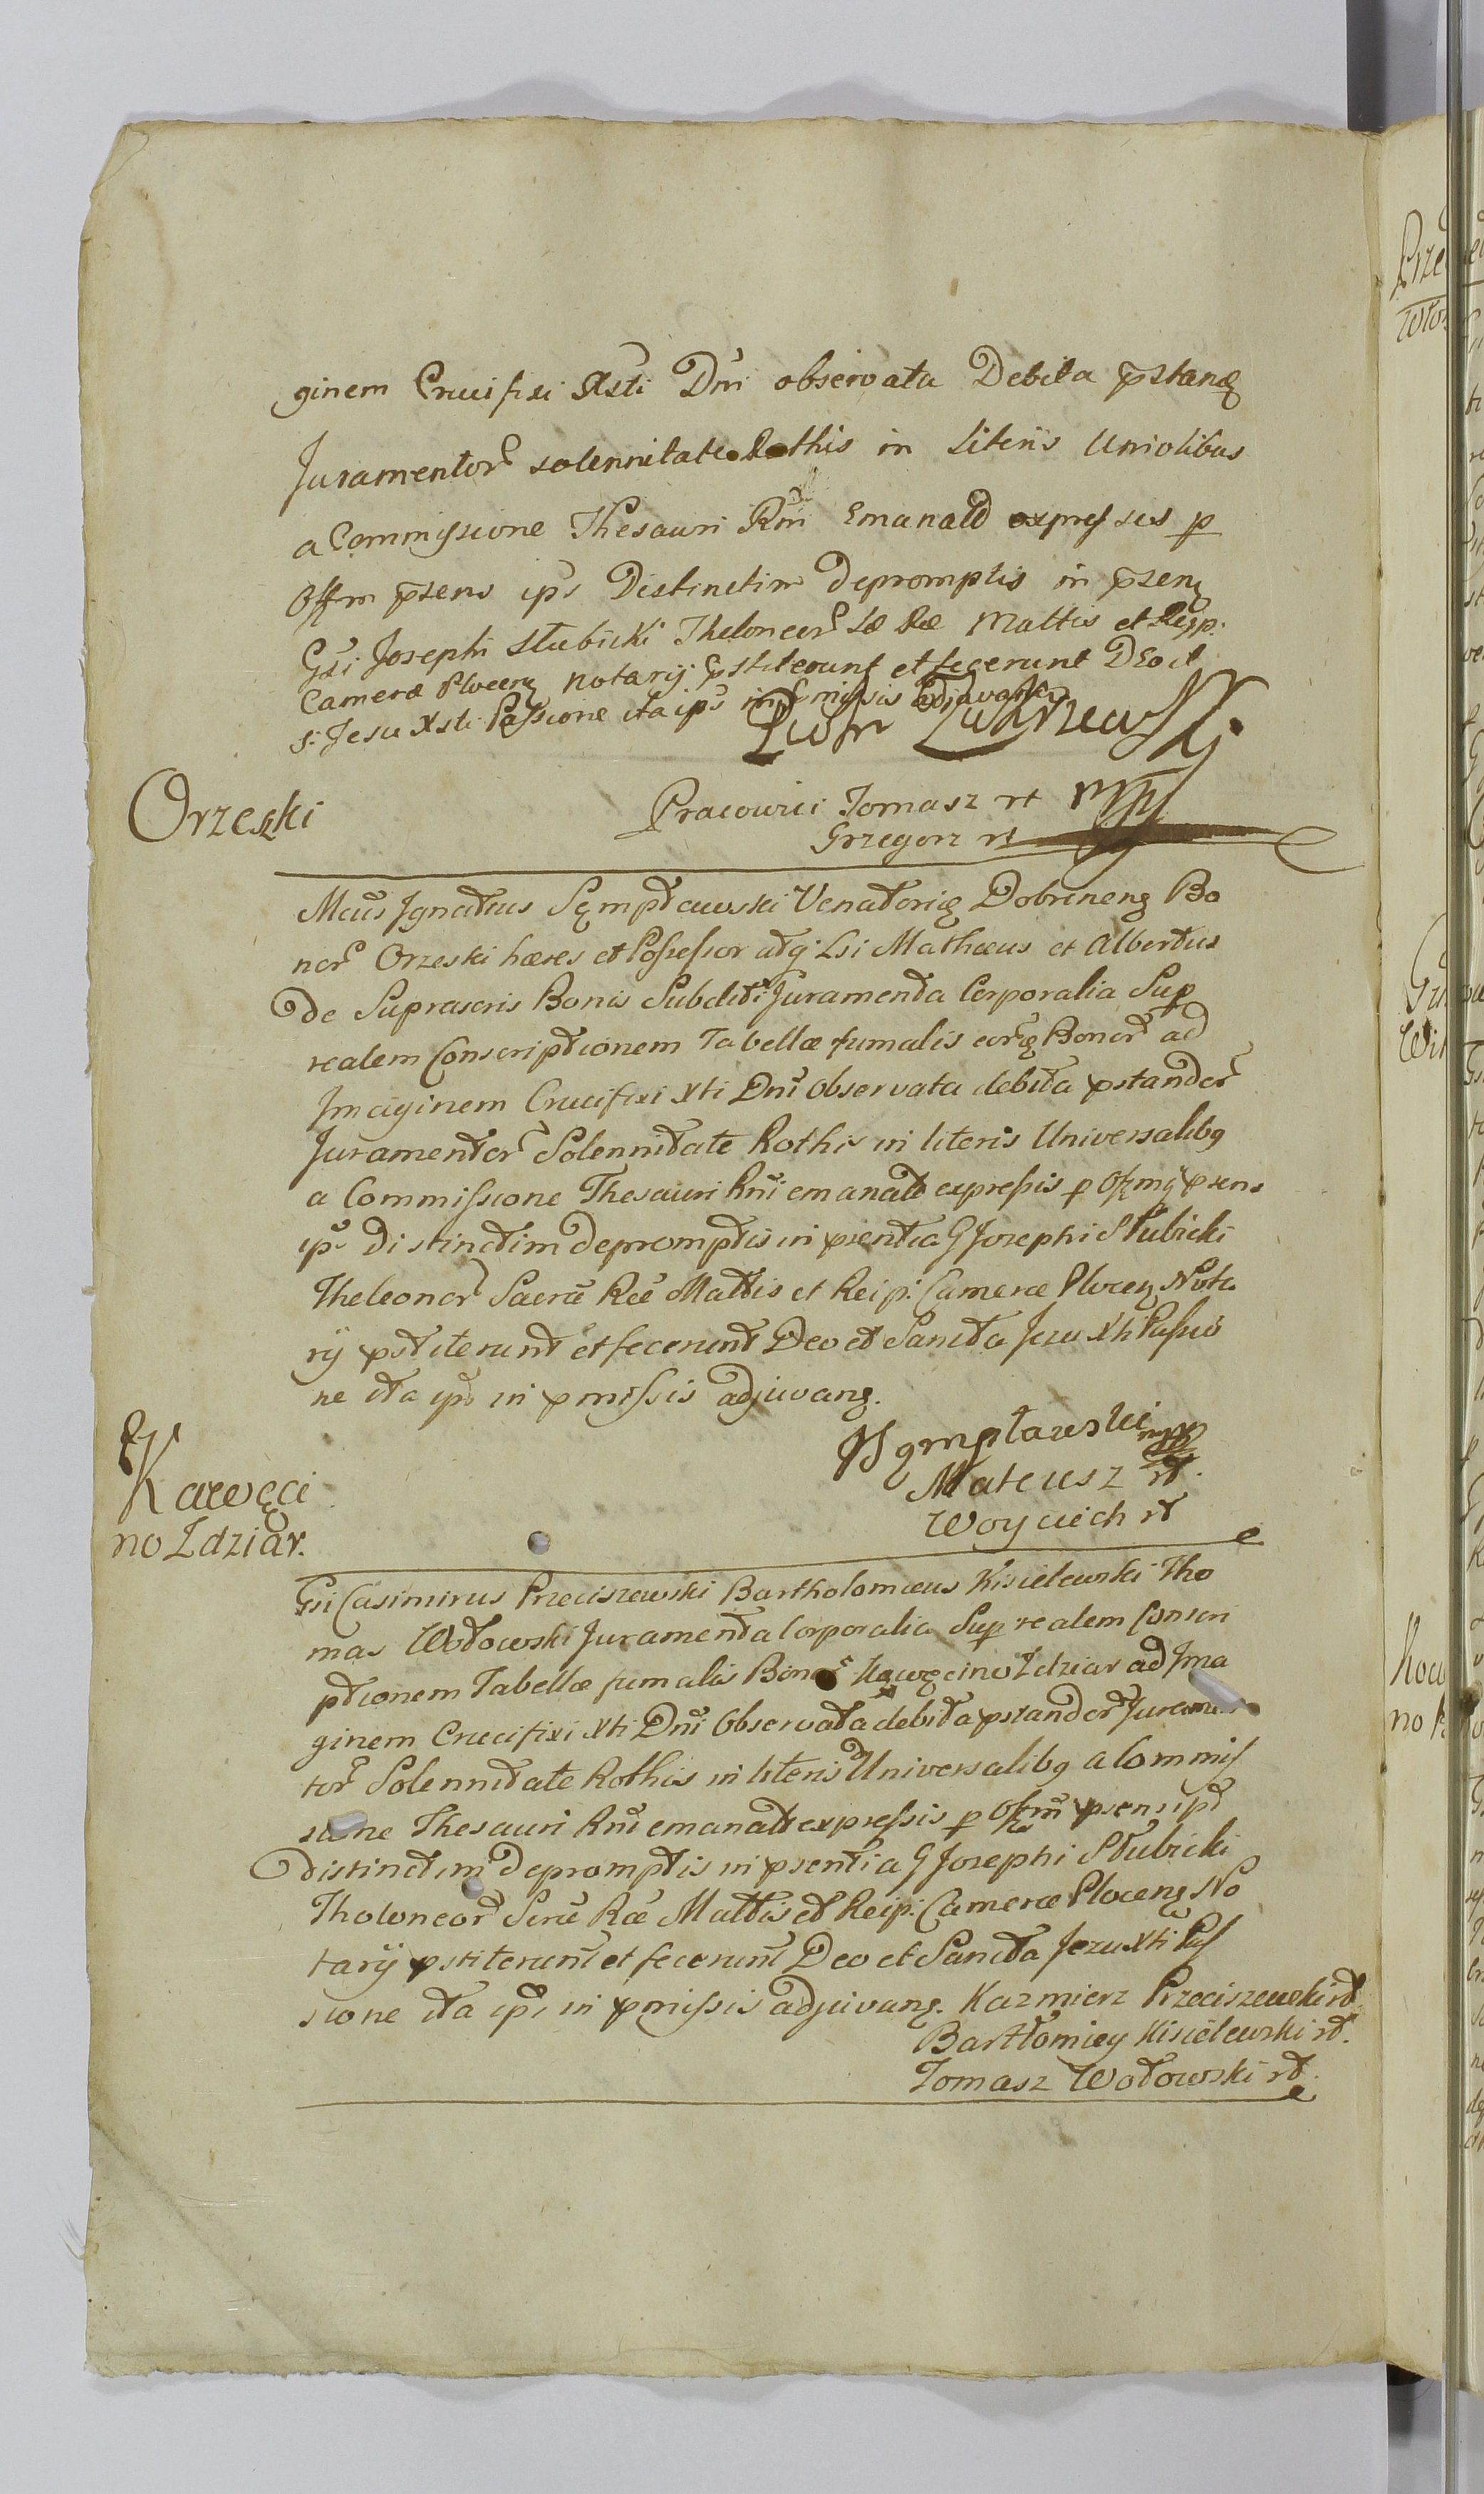 ginem Crucifixi Xsti Dni observata Debita pstanḋ
Juramentor solennitate Rothis in Literis Universalibus
a Commissione Thesauri Rni Emanatd expressis p
Offm psens ips Distinctim depromptis in psenz
Gsi Josephi Słubicki Theloneor Sæ Ræ Mattis et Reip:
Cameræ Plocenz Notarij pstiterunt et fecerunt DEo et
s: Jesu Xsti Passione ita ips in pmissis adjuvante
Orzeski
Pracowici Tomasz rt mpp
Grzegorz rt
Mcus Ignatius Sęmpławski Venatorig Dobrinenz Bo
nor Orzeski hæres et Possessor atq Lsi Mathæus et Albertus
De Suprascris Bonis Subditi Juramenta Corporalia Sup
realem Conscriptionem Tabellæ fumalis eorg Bonor ad
Imaginem Crucifixi Xti Dni Observata debita pstandor
Juramentor Solennitate Rothis in literis Universalibq
a Commissione Thesauri Rni emanatd expressis p Offm psens
ips Distinctim depromptis in psentia G Josephi Słubicki
Theleonor Sacræ Ræ Mattis et Reip: Cameræ Plocenz Nota
rij pstiterunt et fecerunt Deo et Sancta Jezu Xti Passio
ne ita ips in pmissis adjuvanz.
JSęmpławski mpp
Mateusz rt.
Woyciech rt
Kawęci
no Zdziar.
Gsi Casimirus Przeciszewski Bartholomæus Kisielewski Tho
mas Wołowski Juramenta Corporalia Sup realem Conscri
ptionem Tabellæ fumalis Bonor Kawęcino Zdziar ad Ima
ginem Crucifixi Xti Dni Observata debita pstandor Juramen
tor Solennitate Rothis in literis Universalibq a Commis
sione Thesauri Rni emanatd expressis p Offm psens ips
distinctim depromptis in psentia G Josephi Słubicki
Tholoneor Scræ Ræ Mattis et Reip: Cameræ Plocenz No
tarij pstiterunt et fecerunt Deo et Sancta Jezu Xti Pas
sione ita ips in pmissis adjuvanz. Kazmierz Przeciszewski rt
Bartłomiey Kisielewski rt.
Tomasz Wołowski rt.